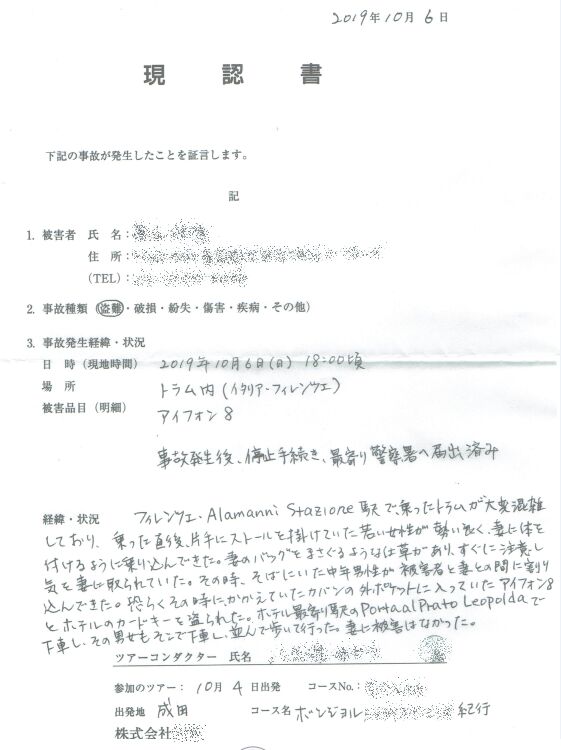 2019年10月6日
現認書
下記の事故が発生したことを証言します。
記
1. 被害者 氏名:
住所:
(TEL):
2. 事故種類(盗難・破損・紛失・傷害・疾病・その他)
3. 事故発生経緯・状況
日時(現地時間) 2019年10月6日(日) 18:00頃
場所 トラム内(イタリア・フィレンツェ)
被害品目(明細) アイフォン8
事故発生後、停止手続き、最寄り警察署へ届出済み
経緯・状況 フィレンツェ・Alamanni Stazione駅で、乗ったトラムが大変混雑
しており、乗った直後、片手にストールを掛けていた若い女性が勢い良く、妻に体を
付けるように乗り込んできた。妻のバッグをまさぐるような仕草があり、すぐに注意し
気を妻に取られていた。その時、そばにいた中年男性が被害者と妻との間に割り
込んできた。恐らくその時にかかえていたカバンの外ポケットに入っていたアイフォン8
とホテルのカードキーを盗られた。ホテル最寄り駅のPorta al Prato Leopoldaで
下車し、その男女もそこで下車し、並んで歩いて行った。妻に被害はなかった。
ツアーコンダクター 氏名
参加のツアー: 10月4日出発 コースNo.:
出発地 成田 コース名 ボンジョル 紀行
株式会社